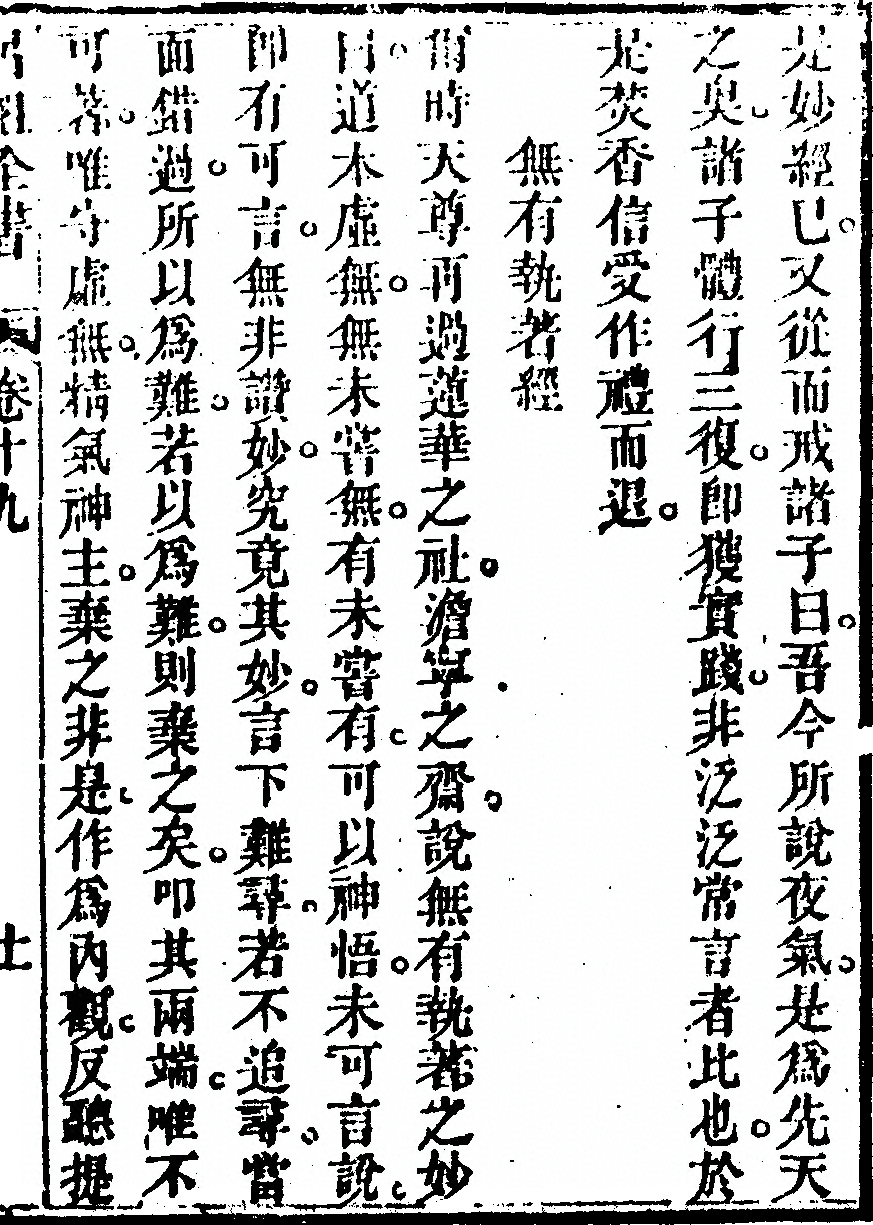 是妙經已又從而戒諸子曰吾今所說夜氣是爲先天
之奧諸子體行三復卽獲實踐非泛泛常言者比也於
是焚香信受作禮而退
無有執著經
爾時天尊再過蓮華之社澹寧之齋說無有執著之妙
曰道本虛無無未嘗無有未嘗有可以神悟未可言說
卽有可言無非讚妙究竟其妙言下難尋若不追尋當
面錯過所以爲難若以爲難則棄之矣叩其兩端唯不
可著唯守虛無精氣神主棄之非是作爲內觀反聽提
呂祖全書 卷十九 十